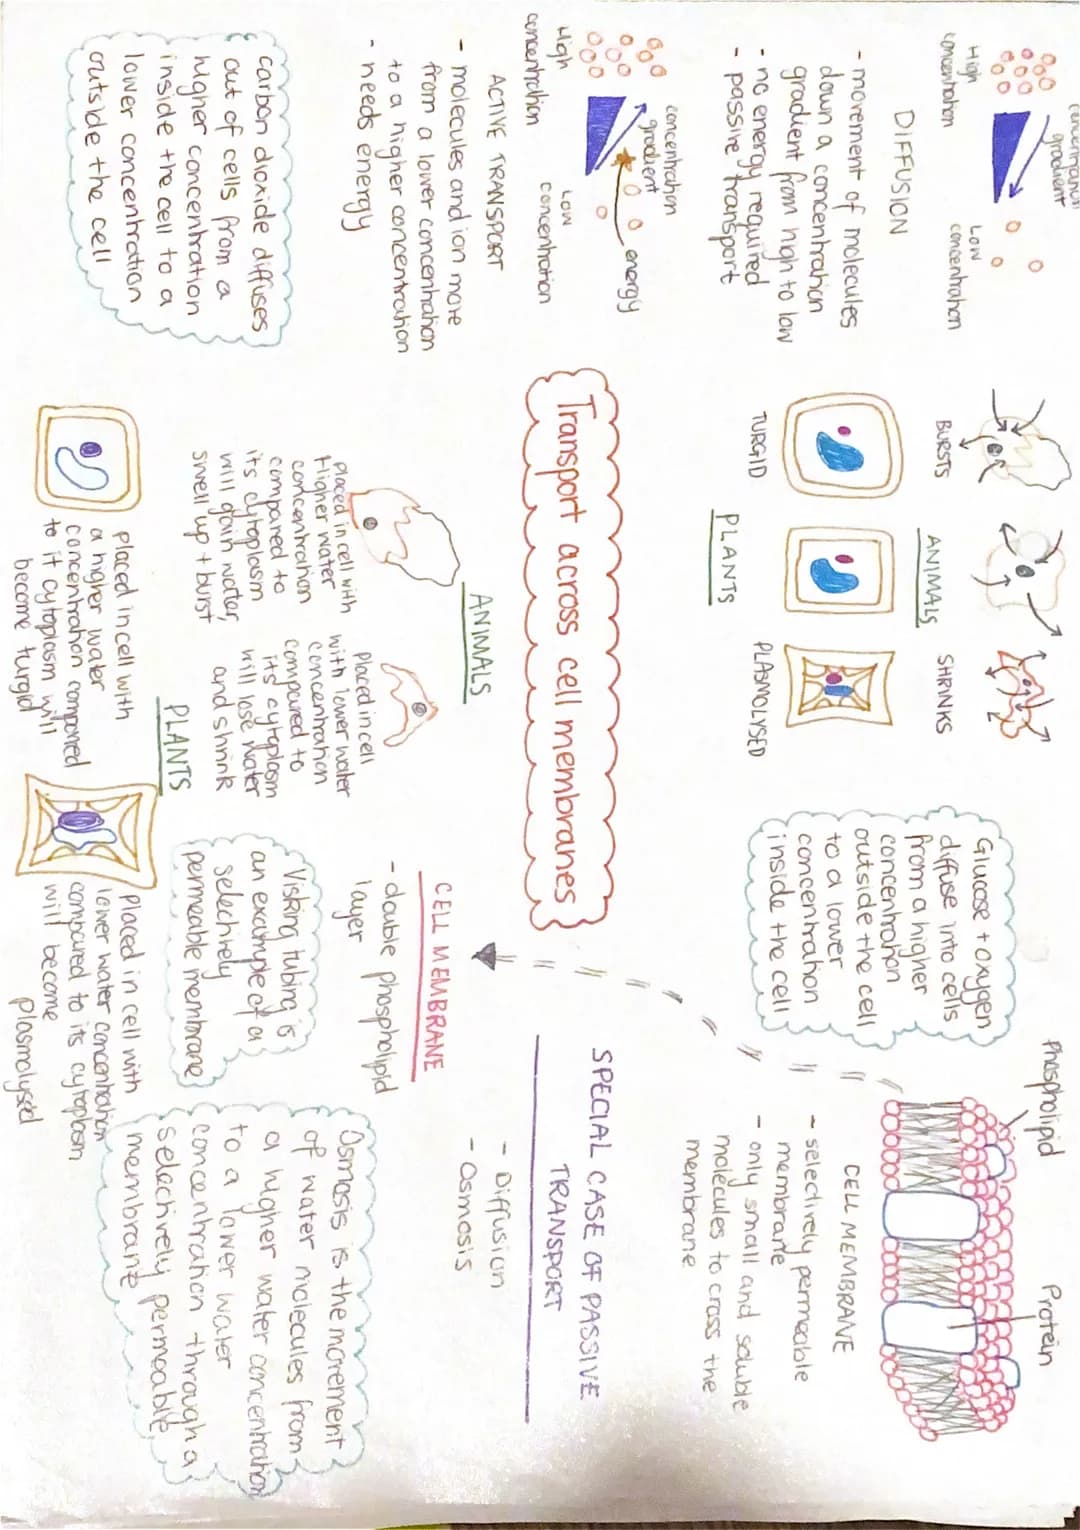 concentration
gradient
High
concentration
Low
concentration
DIFFUSION
- movement of molecules
down a concentration
gradient from high to low
- no energy required
- passive transport
concentration
gradient
energy
High
concentration
Low
concentration
ACTIVE TRANSPORT
- molecules and ion move
from a lower concentration
to a higher concentration
- needs energy
carbon dioxide diffuses
out of cells from a
higher concentration
inside the cell to a
lower concentration
outside the cell
BURSTS
ANIMALS
SHRINKS
TURGID
PLASMOLYSED
PLANTS
Transport across cell membranes
ANIMALS
placed in cell with
Higher water
concentration
compared to
its cytoplasm
will gain water,
swell up + burst
placed in cell
with lower water
concentration
compared to
its cytoplasm
will lose water
and shrink
PLANTS
placed in cell with
a higher water
concentration compared
to it cytoplasm will
become turgid
placed in cell with
lower water concentration
compared to its cytoplasm
will become
plasmolysed
Glucose + oxygen
diffuse into cells
from a higher
concentration
outside the cell
to a lower
concentration
inside the cell
Phospholipid
Protein
CELL MEMBRANE
- selectively permeable
membrane
- only small and soluble
molecules to cross the
membrane
SPECIAL CASE OF PASSIVE
TRANSPORT
- Diffusion
- Osmosis
CELL MEMBRANE
- double phospholipid
layer
Visking tubing is
an example of a
selectively
permeable membrane
Osmosis is the movement
of water molecules from
a higher water concentration
to a lower water
concentration through a
selectively permeable
membrane